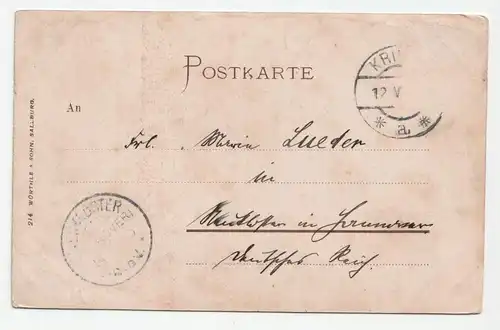 POSTKARTE
KRI
12 V
* a. *
An
Frl. Maria Lueder
in
Neukloster in Hannover
Deutsches Reich
KLOSTER
214 WÜRTHLE & SOHN, SALZBURG.